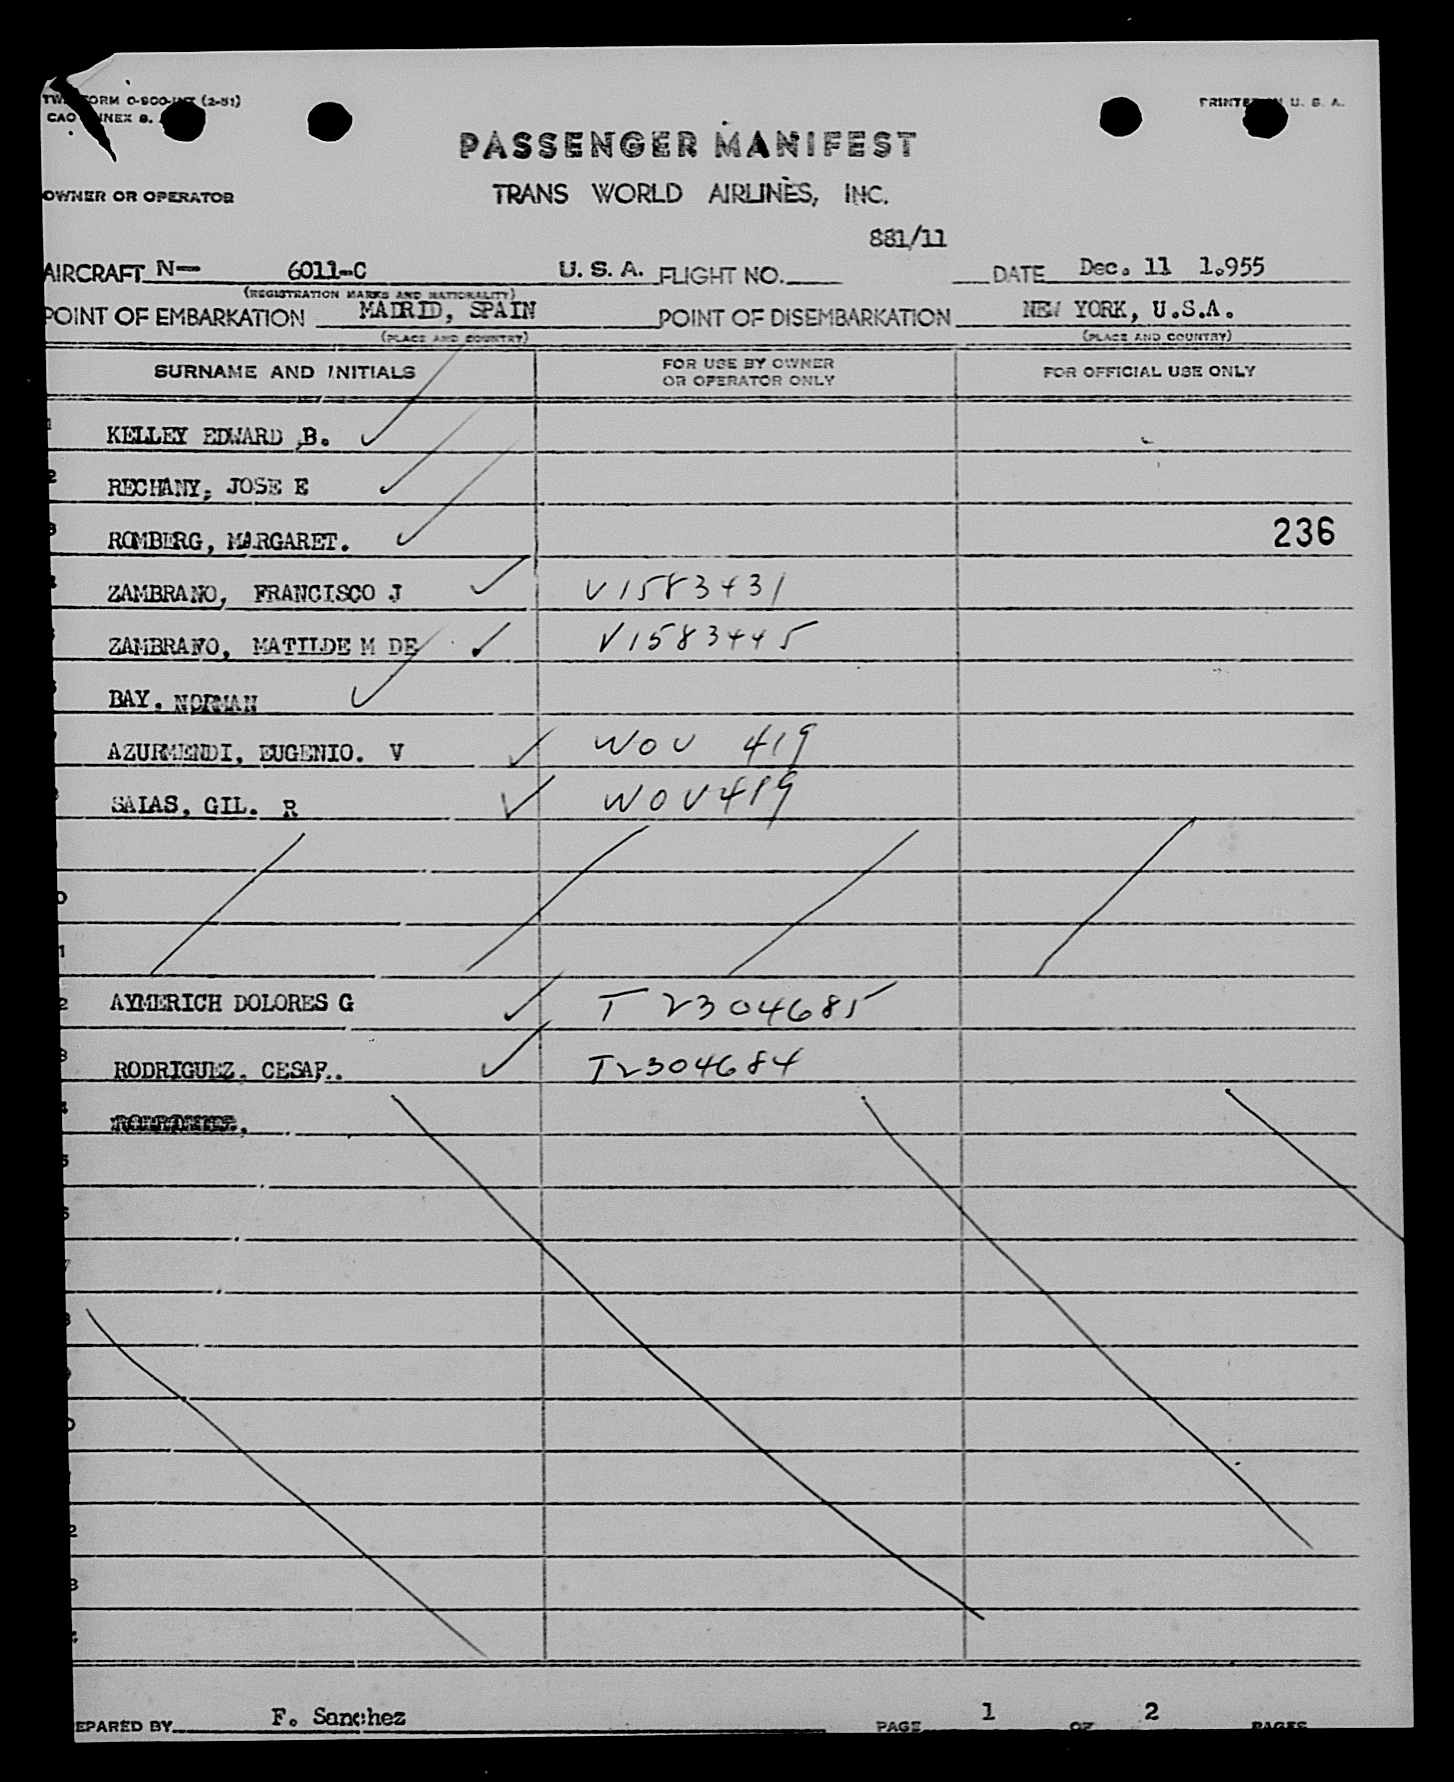 (2-51)
PRINTED IN U. S. A.
CAO ANNEX 9.
PASSENGER MANIFEST
OWNER OR OPERATOR TRANS WORLD AIRLINES, INC.
881/11
AIRCRAFT N— 6011-C U. S. A. FLIGHT NO. DATE Dec. 11 1.955
(REGISTRATION MARKS AND NATIONALITY)
POINT OF EMBARKATION MADRID, SPAIN POINT OF DISEMBARKATION NEW YORK, U.S.A.
(PLACE AND COUNTRY) (PLACE AND COUNTRY)
SURNAME AND INITIALS FOR USE BY OWNER OR OPERATOR ONLY FOR OFFICIAL USE ONLY
1 KELLEY EDWARD ,B. ✓
2 RECHANY, JOSE E ✓
3 ROMBERG, MARGARET. ✓ 236
ZAMBRANO, FRANCISCO J ✓ V1583431
ZAMBRANO, MATILDE M DE ✓ V1583445
BAY. NORMAN ✓
AZURMENDI, EUGENIO. V ✓ WOV 419
SALAS, GIL. R ✓ WOV419
0
1
2 AYMERICH DOLORES G ✓ T 2304685
3 RODRIGUEZ. CESAR.. ✓ T2304684
EPARED BY F. Sanchez PAGE 1 OF 2 PAGES